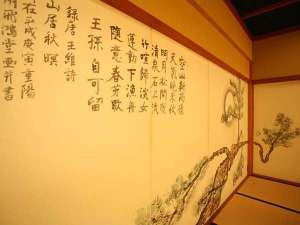 空山新雨後
天氣晚來秋
明月松間照
清泉石上流
竹喧歸浣女
蓮動下漁舟
隨意春芳歇
王孫自可留
録唐王維詩
山居秋暝
在平成庚寅重陽
飛鴻堂畫并書